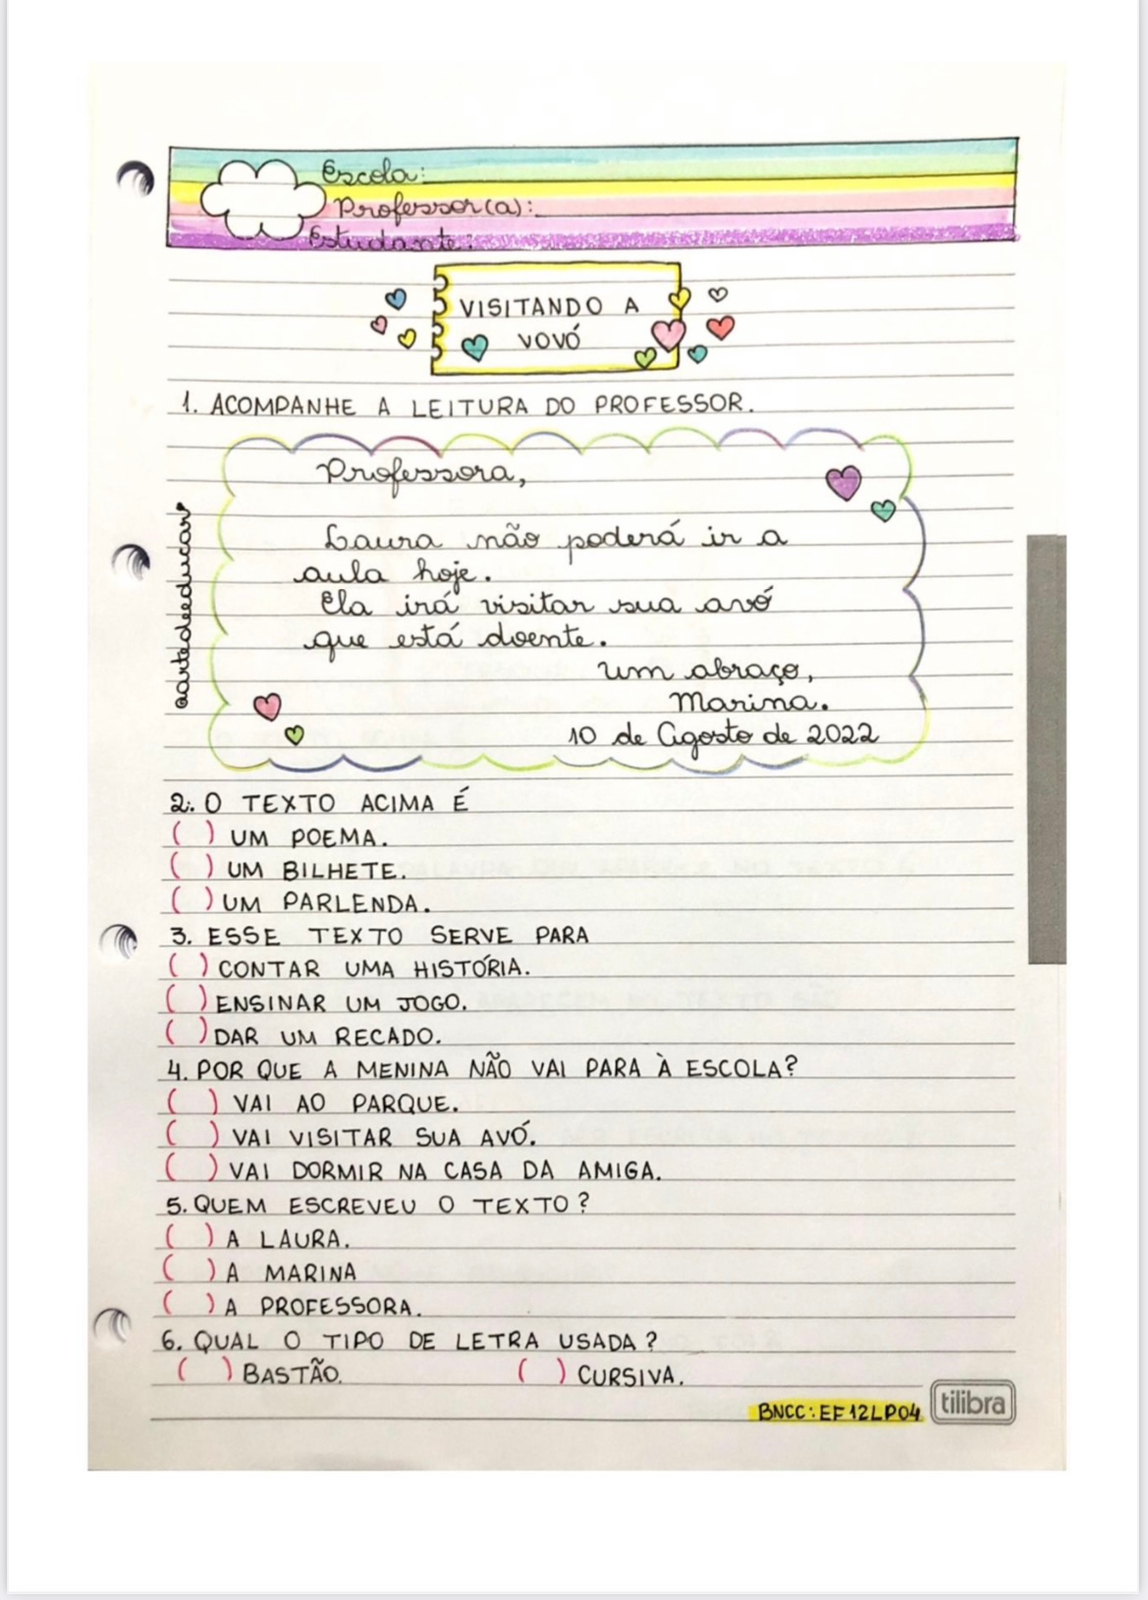 Escola:
Professor(a):
Estudante:
VISITANDO A
VOVÓ
1. ACOMPANHE A LEITURA DO PROFESSOR.
Professora,
Laura não poderá ir a
aula hoje.
Ela irá visitar sua avó
que está doente.
Um abraço,
Marina.
10 de Agosto de 2022
@artedeeducar
2. O TEXTO ACIMA É
( ) UM POEMA.
( ) UM BILHETE.
( ) UM PARLENDA.
3. ESSE TEXTO SERVE PARA
( ) CONTAR UMA HISTÓRIA.
( ) ENSINAR UM JOGO.
( ) DAR UM RECADO.
4. POR QUE A MENINA NÃO VAI PARA À ESCOLA?
( ) VAI AO PARQUE.
( ) VAI VISITAR SUA AVÓ.
( ) VAI DORMIR NA CASA DA AMIGA.
5. QUEM ESCREVEU O TEXTO?
( ) A LAURA.
( ) A MARINA
( ) A PROFESSORA.
6. QUAL O TIPO DE LETRA USADA?
( ) BASTÃO. ( ) CURSIVA.
BNCC: EF12LP04
tilibra